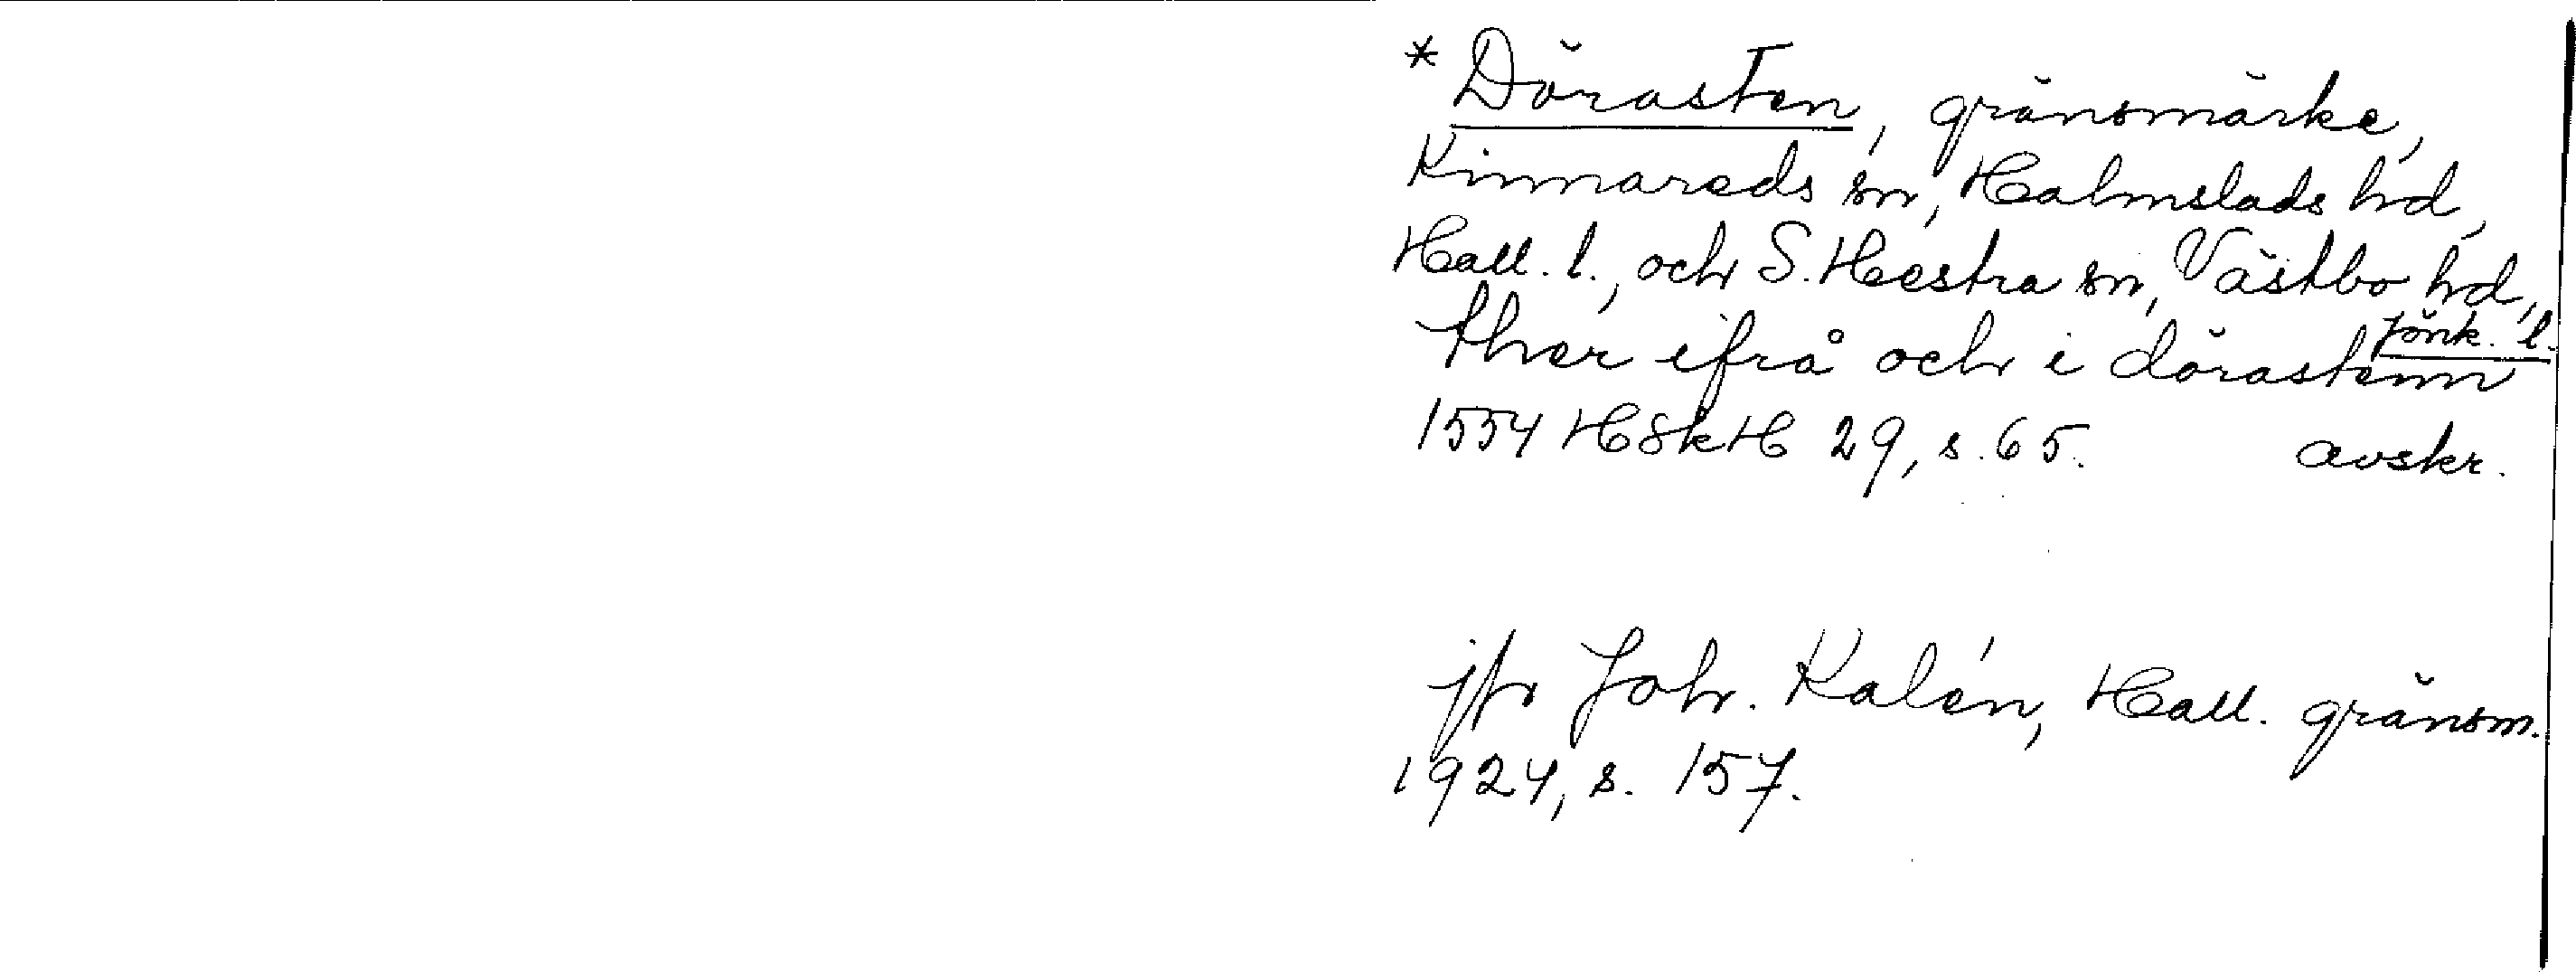 * Dörasten, gränsmärke,
Kinnareds sn, Halmstads hd,
Hall. l., och S. Hestra sn, Västbo hd,
Jönk. l.
ther ifrå och i dörastenn
1554 HSkH 29, s. 65. avskr.
jfr Joh. Kalén, Hall. gränsm.
1924, s. 157.